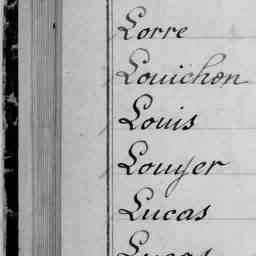 Lorre
Louichon
Louis
Louyer
Lucas
Lucas